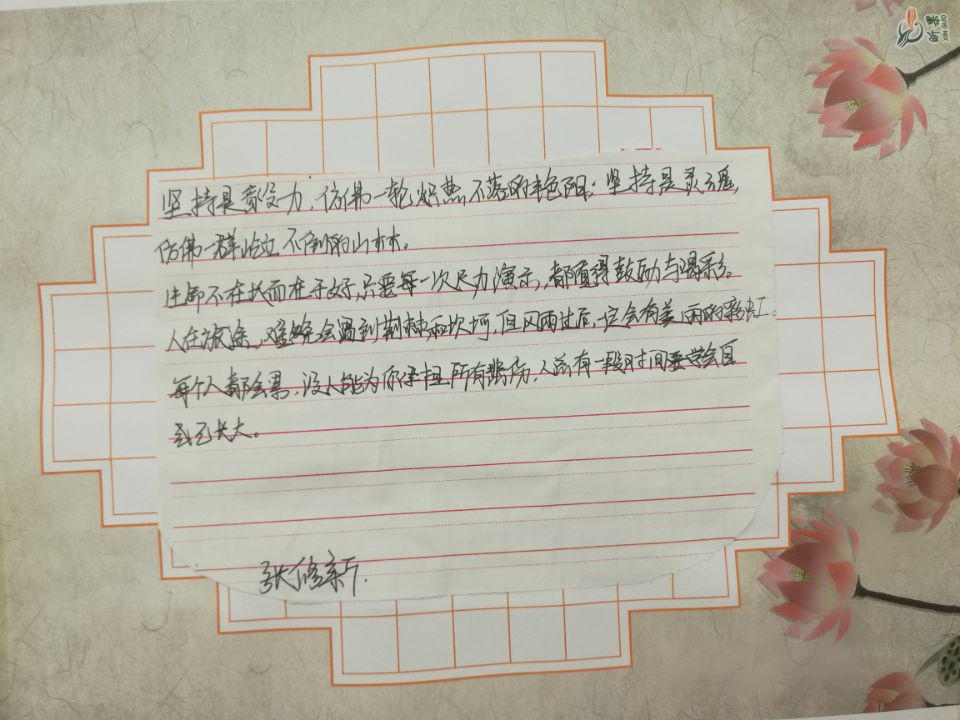 坚持是毅力,仿佛一轮炽热不落的艳阳;坚持是灵魂,
仿佛一群屹立不倒的山林。
生命不在长而在于好,只要每一次尽力演示,都值得鼓励与喝彩。
人在旅途,难免会遇到荆棘和坎坷,但风雨过后,一定会有美丽的彩虹。
每个人都会累,没人能为你承担所有悲伤,人总有一段时间要学会自
己长大。
张修新